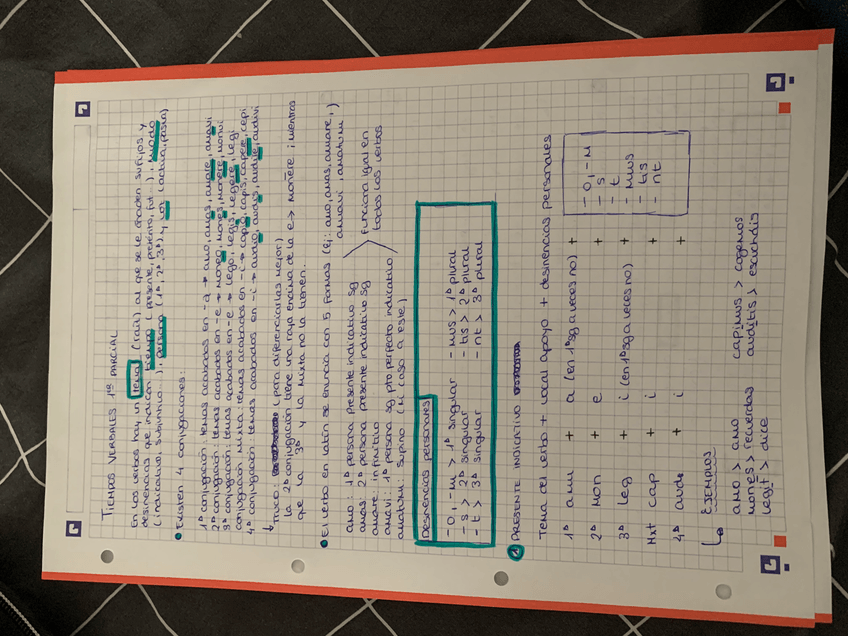 TIEMPOS VERBALES 1º PARCIAL
En los verbos hay un tema (raíz) al que se le añaden sufijos y
desinencias que indican tiempo (presente, pretérito, fut...), modo
(indicativo, subjuntivo...), persona (1ª, 2ª, 3ª) y voz (activa, pasiva)
Existen 4 conjugaciones:
1ª conjugación: temas acabados en -a → amo, amas, amare, amavi
2ª conjugación: temas acabados en -e → moneo, mones, monere, monui
3ª conjugación: temas acabados en -e → lego, legis, legere, legi
conjugación mixta: temas acabados en -i → capio, capis, capere, cepi
4ª conjugación: temas acabados en -i → audio, audis, audire, audivi
↓ TRUCO: (para diferenciarlas mejor)
la 2ª conjugación tiene una raya encima de la e → monēre; mientras
que la 3ª y la mixta no la tienen.
El verbo en latín se enuncia con 5 formas (Ej: amo, amas, amare,
amavi, amatum)
amo: 1ª persona presente indicativo sg
amas: 2ª persona presente indicativo sg
amare: infinitivo
amavi: 1ª persona sg pto perfecto indicativo
amatum: supino (ni caso a este)
Funciona igual en
todos los verbos
Desinencias personales
-o, -m > 1ª singular -mus > 1ª plural
-s > 2ª singular -tis > 2ª plural
-t > 3ª singular -nt > 3ª plural
1 PRESENTE INDICATIVO
Tema del verbo + vocal apoyo + desinencias personales
1ª am + a (en 1ª sg a veces no) +
2ª mon + e +
3ª leg + i (en 1ª sg a veces no) +
Mxt cap + i +
4ª aud + i +
-o, -m
-s
-t
-mus
-tis
-nt
EJEMPLOS
amo > amo capimus > cogemos
mones > recuerdas auditis > escucháis
legit > dice